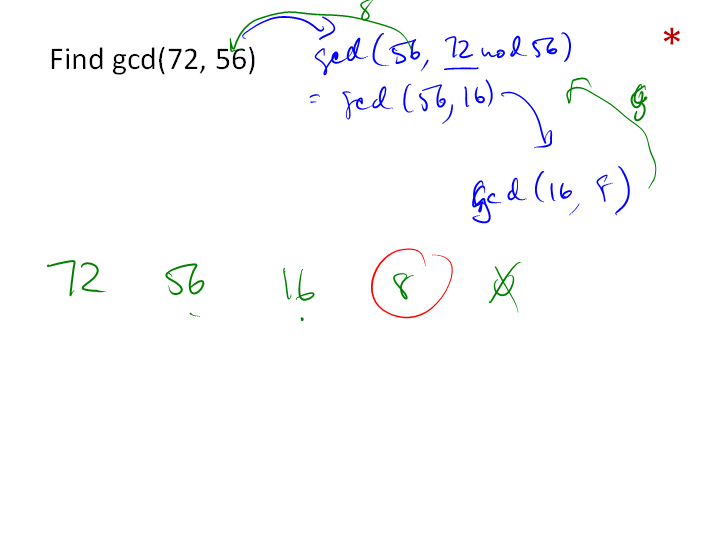 8
Find gcd(72, 56) gcd(56, 72 mod 56) *
= gcd(56, 16) 8
gcd(16, 8)
72 56 16 8 0